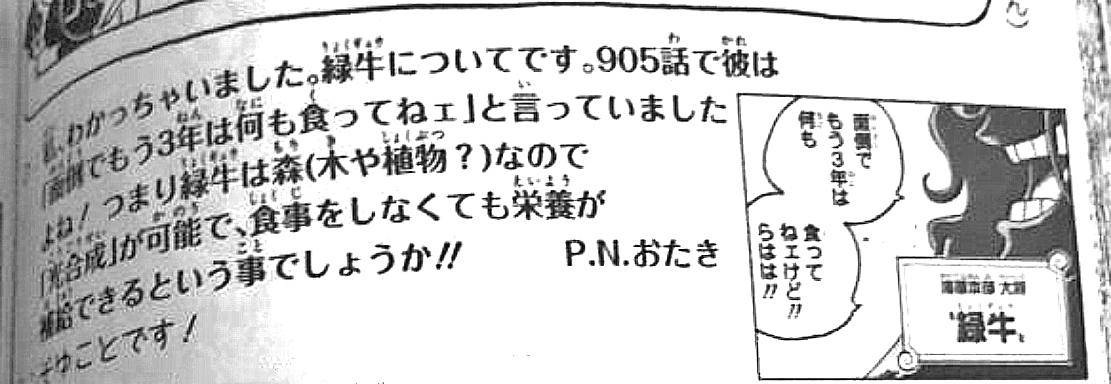 ん)
私、わかっちゃいました。緑牛についてです。905話で彼は
「面倒でもう3年は何も食ってねェ」と言っていました
よね! つまり緑牛は森(木や植物?)なので
「光合成」が可能で、食事をしなくても栄養が
補給できるという事でしょうか!! P.N.おたき
ゆことです!
面倒で
もう3年は
何も
食って
ねェけど!!
らはは!!
海軍本部 大将
“緑牛”